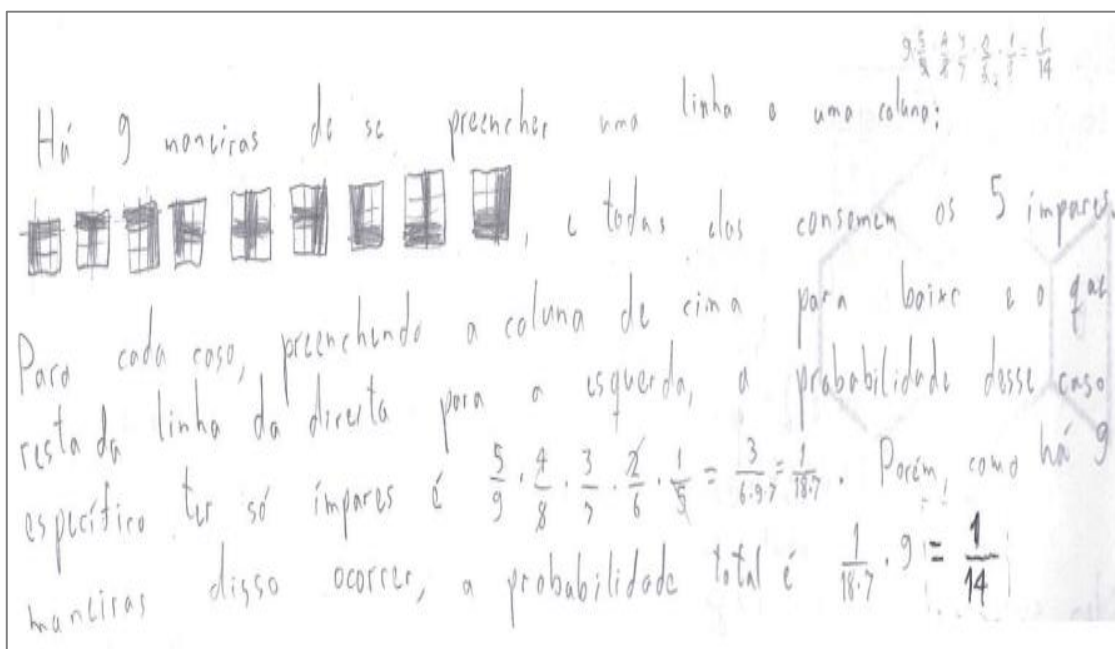 9·5/9·4/8·3/7·2/6·1/5 = 1/14
Há 9 maneiras de se preencher uma linha e uma coluna:
, e todas elas consomem os 5 ímpares
Para cada caso, preenchendo a coluna de cima para baixo e o que
resta da linha da direita para a esquerda, a probabilidade desse caso
específico ter só ímpares é 5/9 · 4/8 · 3/7 · 2/6 · 1/5 = 3/6·9·7 = 1/18·7 . Porém, como há 9
maneiras disso ocorrer, a probabilidade total é 1/18·7 · 9 = 1/14